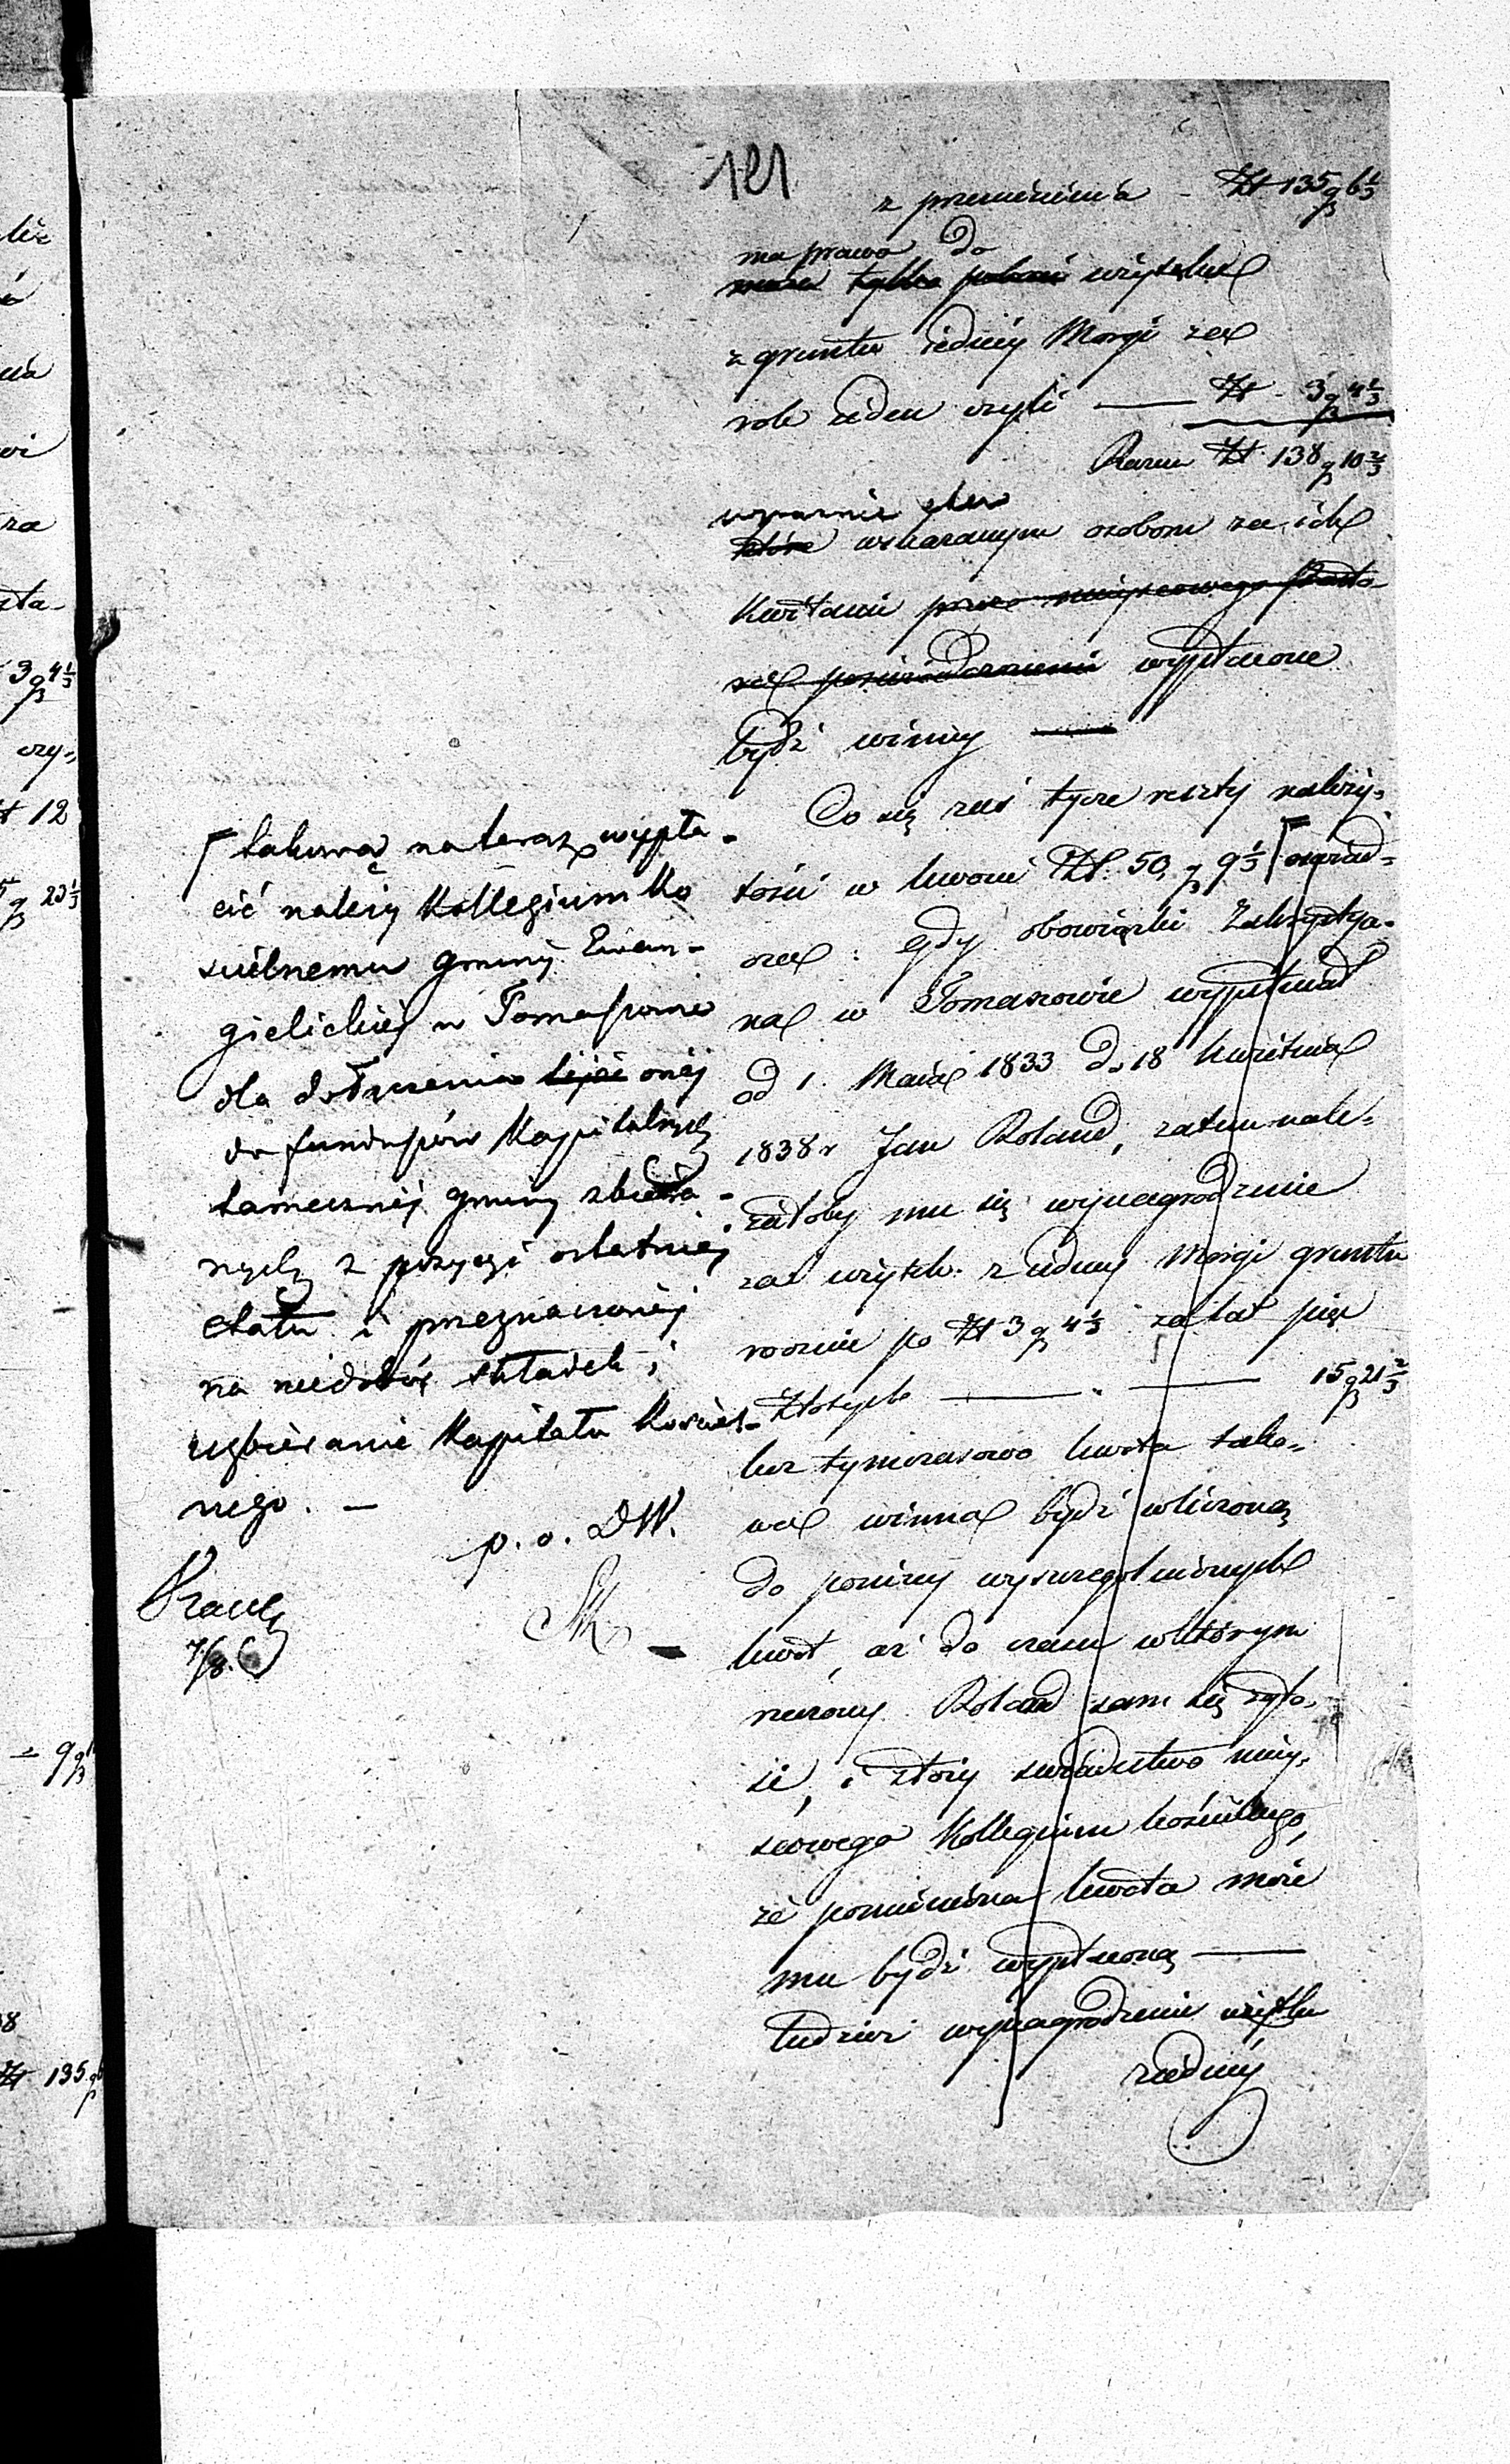 121
z przeniesienia - Zł 135 gr 6 1/3
ma prawo do
tylko użytek
z gruntu iedney Morgi za
rok ieden czyli — Zł 3 gr 4 1/3
Razem Zł 138 gr 10 2/3
które wskazanym osobom za ich
kwitami przez mieyscowego Pasto
ra poświadczonemi wypłacone
bydź winny —
Co się zaś tycze reszty należy-
tości w kwocie Zł. 50 gr 9 1/3
gdy obowiązki Zakrystya-
na w Tomaszowie wypełniał
od 1. Maia 1833 do 18 Kwietnia
1838 r Jan Roland, zatem nale-
żałoby mu się wynagrodzenie
za użytek z iedney Morgi gruntu
rocznie po Zł 3 gr 4 1/3 za lat pięć
Złotych — " — 15 gr 21 2/3
lecz tymczasowo kwota tako-
wa winna bydź wliczoną
do poniżey wyszczególnionych
kwot, aż do czasu w którym
rzeczony Roland sam się zgło-
si, i złoży świadectwo miey-
scowego Kollegium kościelnego,
że pomieniona kwota może
mu bydź wypłaconą —
tudzież wynagrodzenie użytku
z iedney
takową na teraz wypła-
cić należy Kollegium Ko
ścielnemu gminy Ewan-
gielickiey w Tomaszowie
dla dołączenia teyże oney
do funduszów Kapitalnych
tameczney gminy zbiera-
nych z pozycyi ostatniey
etatu i przeznaczoney
na niedobór składek i
uzbieranie Kapitału Kościel-
nego. —
p. o. DW.
7/8.